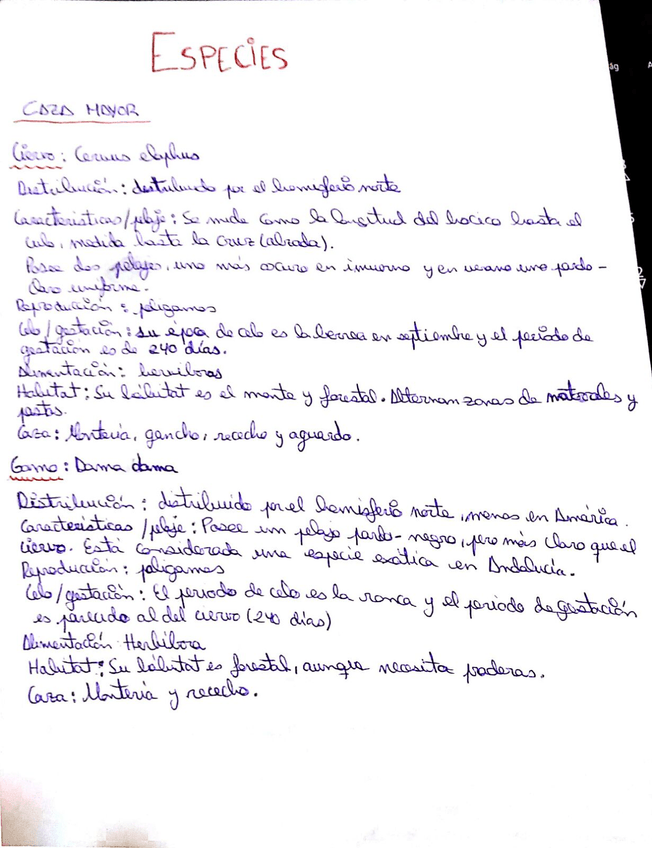 ESPECIES
CAZA MAYOR
Ciervo: Cervus elaphus
Distribución: distribuido por el hemisferio norte
Características/pelaje: Se mide como la longitud del hocico hasta el
culo, medida hasta la cruz (alzada).
Posee dos pelajes, uno más oscuro en invierno y en verano uno pardo-
claro uniforme.
Reproducción: poligamos
Celo/gestación: su época de celo es la berrea en septiembre y el periodo de
gestación es de 240 días.
Alimentación: herviboros
Habitat: Su hábitat es el monte y forestal. Alternan zonas de matorrales y
pastos.
Caza: Montería, gancho, rececho y aguardo.
Gamo: Dama dama
Distribución: distribuido por el hemisferio norte, menos en América.
Características/pelaje: Posee un pelaje pardo-negro, pero más claro que el
ciervo. Está considerada una especie exótica en Andalucía.
Reproducción: poligamos
Celo/gestación: El periodo de celo es la ronca y el periodo de gestación
es parecido al del ciervo (240 días)
Alimentación Herbibora
Habitat: Su hábitat es forestal, aunque necesita praderas.
Caza: Montería y rececho.